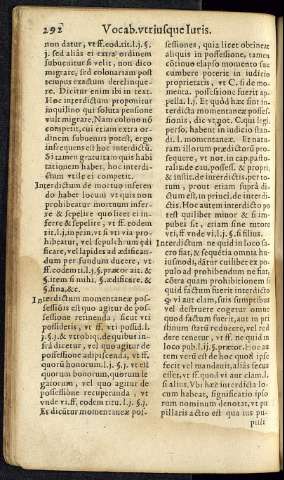 292 Vocab. vtriusque Iuris.
non datur, vt ff. eod. tit. l. j. §.
j. sed alias ei extra ordinem
subuenitur si velit, non dico
migrare, sed colonariam post
tempus exactum derelinque-
re. Dicitur enim ibi in text.
Hoc interdictum proponitur
inquilino qui soluta pensione
vult migrare. Nam colono nõ
competit, cui etiam extra or-
dinem subueniri potest, ergo
infrequens est hoc interdictũ.
Si tamen gratuitam quis habi
tationem habet, hoc interdi-
ctum vtile ei competit.
Interdictum de mortuo inferen
do habet locum vt quis non
prohibeatur mortuum infer-
re & sepelire quo licet ei in-
ferre & sepelire, vt ff. eodem
tit. l. j. in prin. vt si via pro-
hibeatur, vel sepulchrum ędi
ficare, vel lapides ad ædifican-
dum per fundum ducere, vt
ff. eodem tit. l. j. §. prætor ait. &
§. item si mihi. §. ædificare. &
§. fina. &c.
Interdictum momentaneæ pos-
sessiõis est quo agitur de pos-
sessione retinenda, sicut vti
possidetis, vt ff. vti possid. l.
j. §. j. & vtrobiq. de quibus in-
frà dicetur, vel quo agitur de
possessione adipiscenda, vt ff.
quorũ honorum l. j. §. j. vt est
quorum bonorum, quorum le
gatorum, vel quo agitur de
possessione recuperanda, vt
vnde vi. ff. eodem titu. l. j. §. j.
Et dicũtur momentaneæ pos-
sessiones, quia licet obtineat
aliquis in possessione, tamen
cõtinuo elapso momento suc
cumbere poterit in iudicio
proprietatis, vt C. si de mo-
menta. possessione fuerit ap-
pella. l. j. Et quòd hæc sint in-
terdicta momentaneæ posses-
sionis, dic vt not. C. qui legi.
perso. habent in iudicio stan-
di. l. momentaneæ. Et natu-
ram illorum prædictorũ pros-
sequere, vt not. in cap. pasto-
ralis. de cau. possess. & propri.
& instit. de interdict. per to-
tum, prout etiam suprà di-
ctum est, in princi. de interdi-
ctis. Hoc autem interdicto po
test quilibet minor & si im-
pubes sit, etiam sine tutore
vti, ff. vnde vi. l. j. §. si filius.
Interdictum ne quid in loco sa-
cro fiat, & sequẽtia omnia hu
iusmodi, dãtur cuilibet de po-
pulo ad prohibendum ne fiat,
cõtra quam prohibitionem
quis fecerit tenetur interdicto
q̃ vi aut clam, suis sumptibus
vel destruere cogetur omne
quod factum fuerit, aut in pri
stinum statũ reducere, vel red
dere tenetur, vt ff. ne quid in
loco pub. l. ij. §. prætor. Hoc au
tem verũ est de hoc quod ipse
fecit vel mandauit, aliàs secus
esset, vt ff. quod vi aut clam. l.
si alius. Vbi hæc interdicta lo-
cum habeat, significatio ipso
rum nominum denotat, vt pu
pillaris actio est qua ius pu-
pill